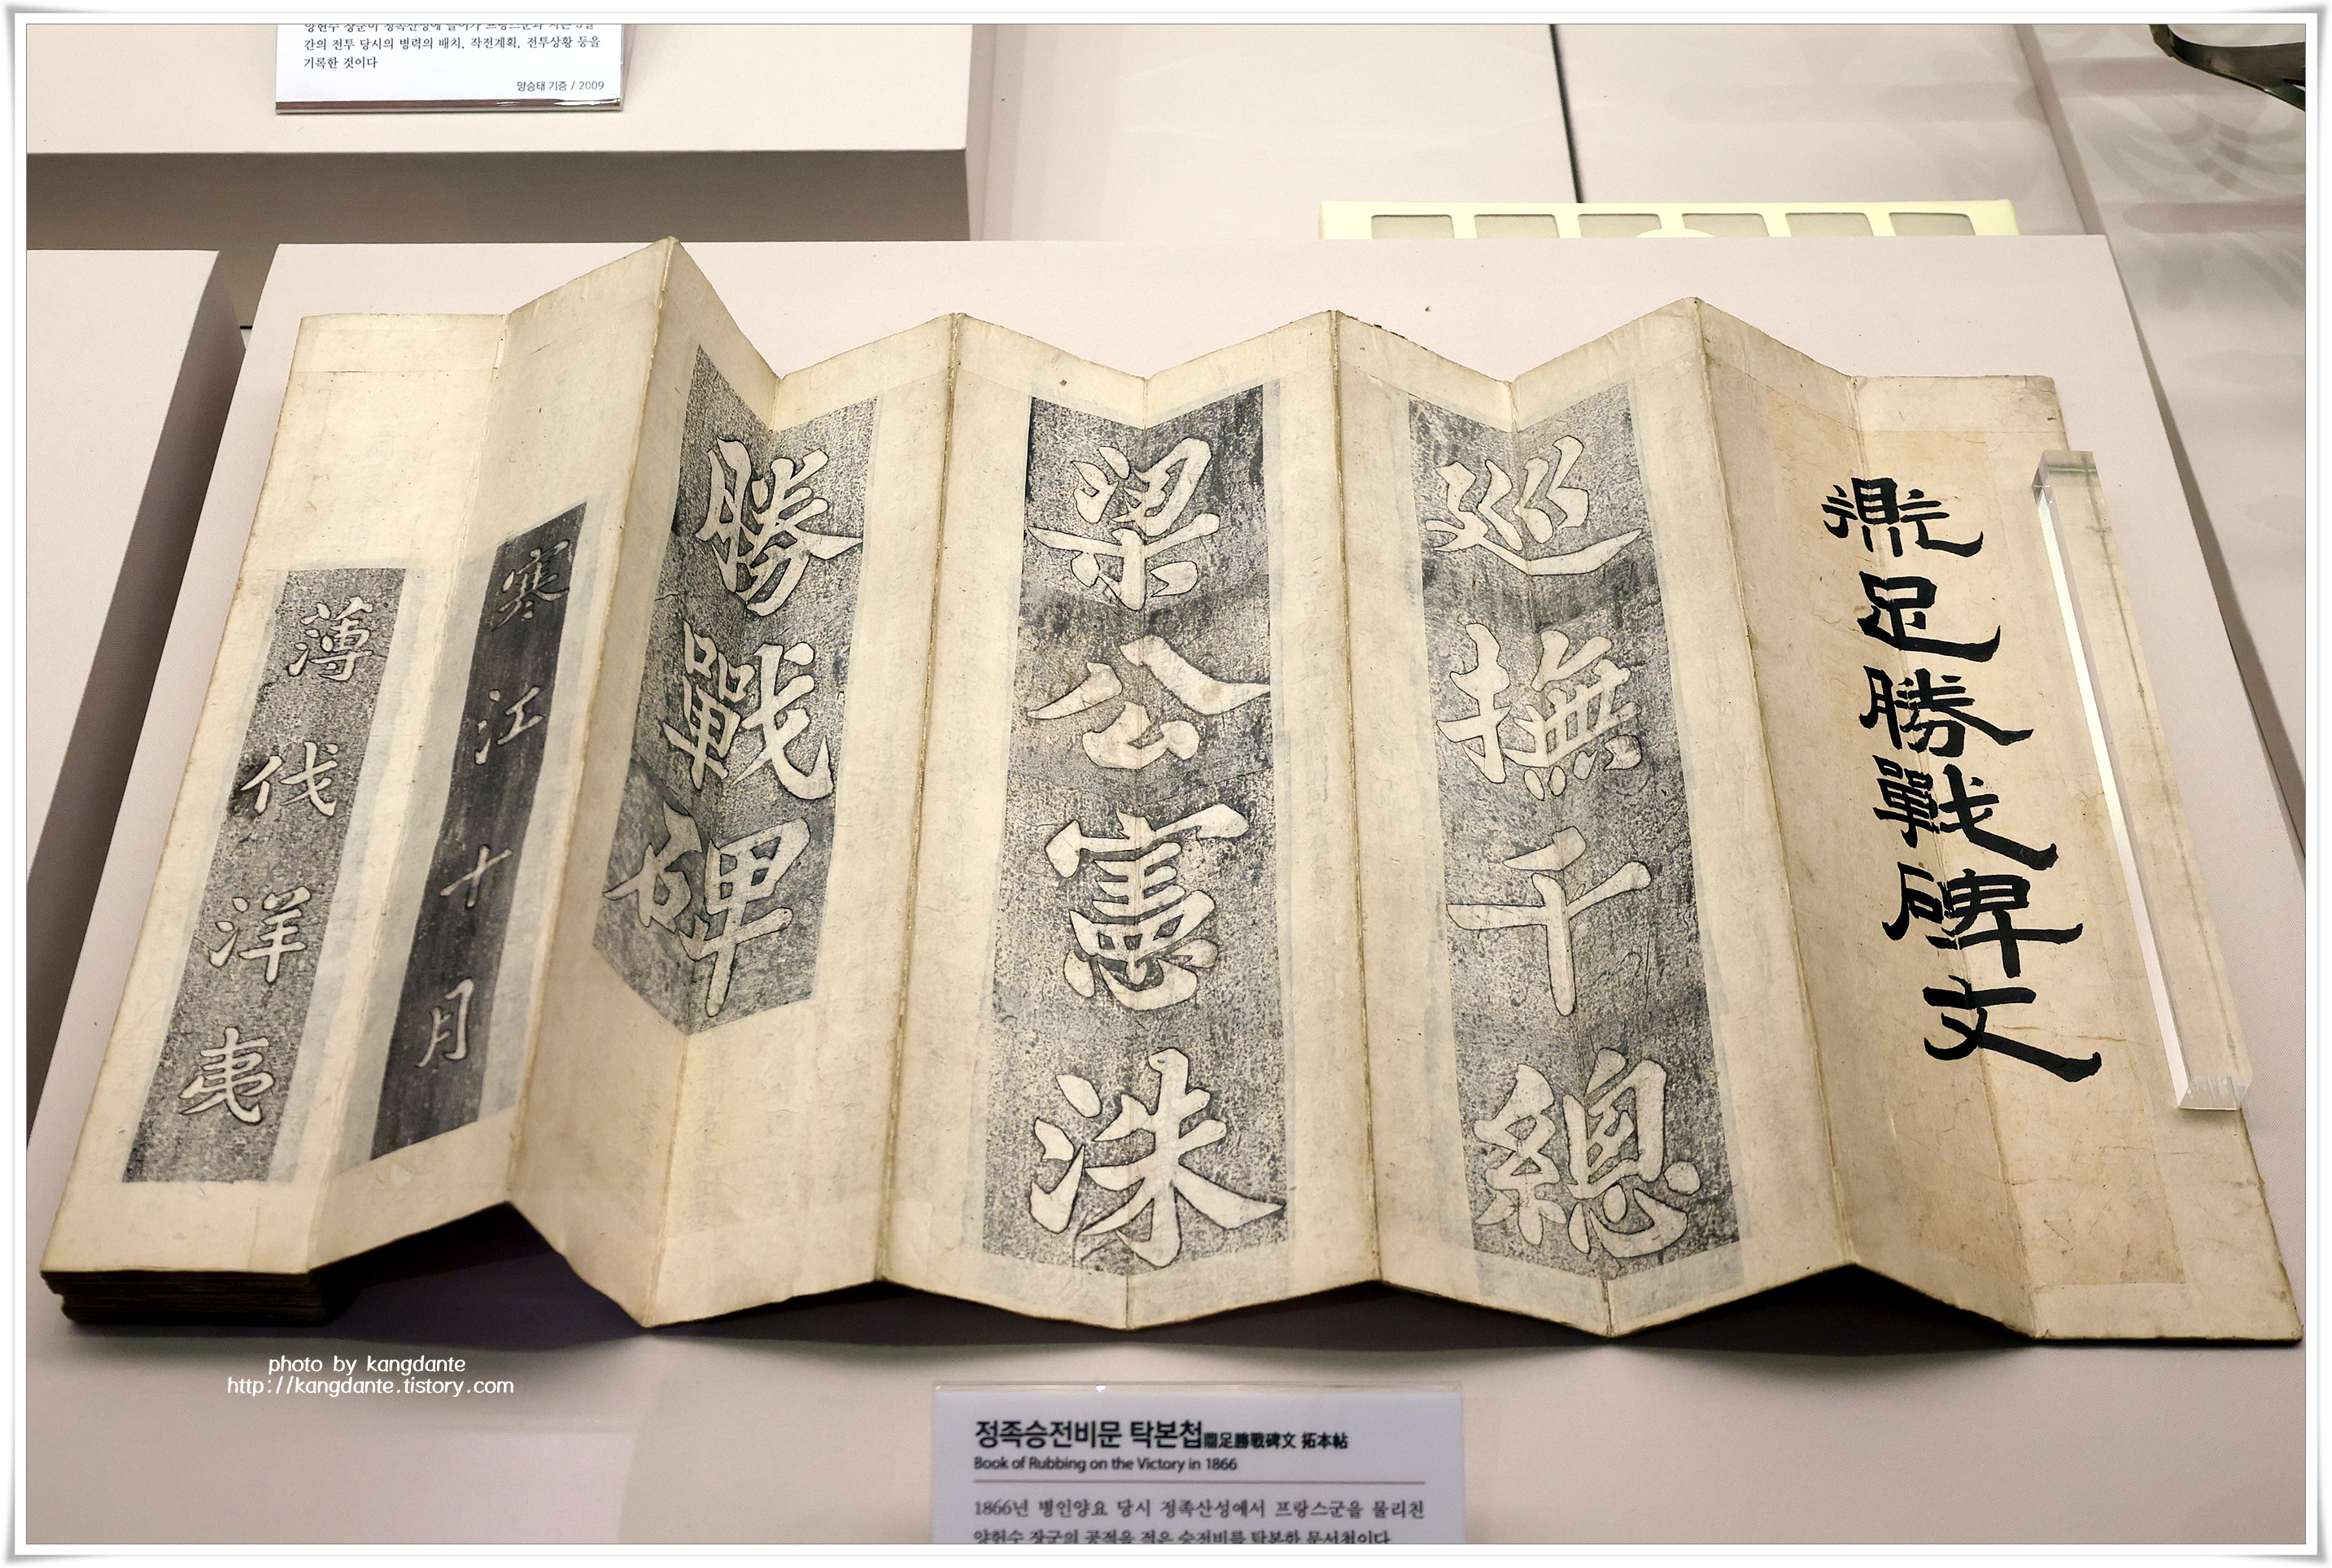 간의 전투 당시의 병력의 배치, 작전계획, 전투상황 등을
기록한 것이다
양승태 기증 / 2009
鼎足勝戰碑文
巡撫千總
梁公憲洙
勝戰碑
寒江十月
薄伐洋夷
photo by kangdante
http://kangdante.tistory.com
정족승전비문 탁본첩鼎足勝戰碑文 拓本帖
Book of Rubbing on the Victory in 1866
1866년 병인양요 당시 정족산성에서 프랑스군을 물리친
양헌수 장군의 공적을 적은 승전비를 탁본한 문서첩이다